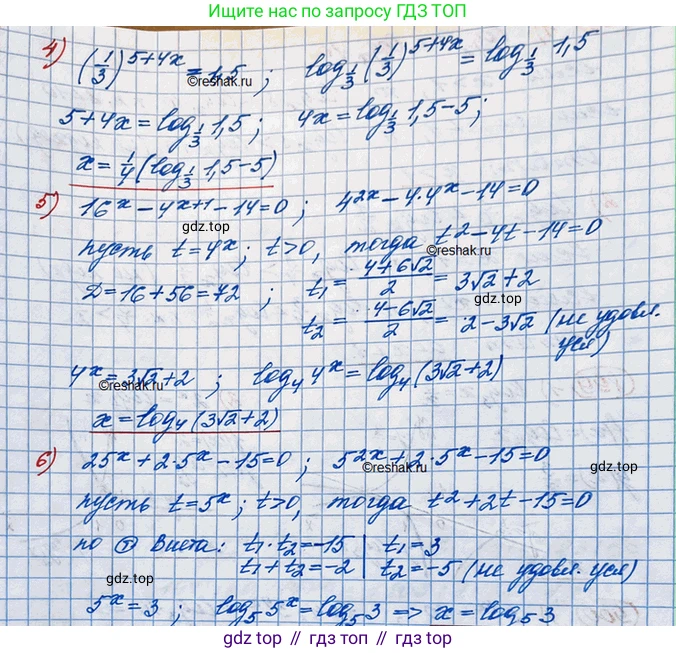 Ищите нас по запросу ГДЗ ТОП
4) (1/3)^(5+4x) = 1,5 ; log_(1/3) (1/3)^(5+4x) = log_(1/3) 1,5
©reshak.ru
5+4x = log_(1/3) 1,5 ; 4x = log_(1/3) 1,5-5;
x = 1/4 (log_(1/3) 1,5-5)
5) 16^x - 4^(x+1) - 14 = 0 ; 4^(2x) - 4·4^x - 14 = 0
пусть t=4^x ; t>0, тогда t² - 4t - 14 = 0
©reshak.ru
Д = 16+56 = 72 ; t₁ = (4+6√2)/2 = 3√2+2
t₂ = (4-6√2)/2 = 2-3√2 (не удовл. усл)
4^x = 3√2+2 ; log₄ 4^x = log₄ (3√2+2)
©reshak.ru
x = log₄ (3√2+2)
6) 25^x + 2·5^x - 15 = 0 ; 5^(2x) + 2·5^x - 15 = 0
©reshak.ru
пусть t=5^x ; t>0, тогда t²+2t-15=0
по Т Виета: t₁·t₂=-15 | t₁=3
t₁+t₂=-2 | t₂=-5 (не удовл. усл)
5^x = 3 ; log₅ 5^x = log₅ 3 => x = log₅ 3
гдз топ
гдз топ
гдз топ
гдз топ
гдз топ
гдз топ // гдз топ // гдз топ